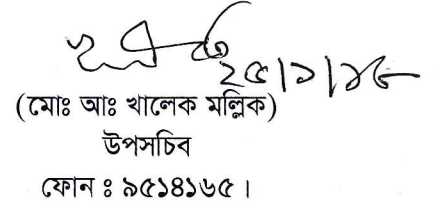 ২৫|১|১৮
(মোঃ আঃ খালেক মল্লিক)
উপসচিব
ফোন ঃ ৯৫১৪১৬৫ ।